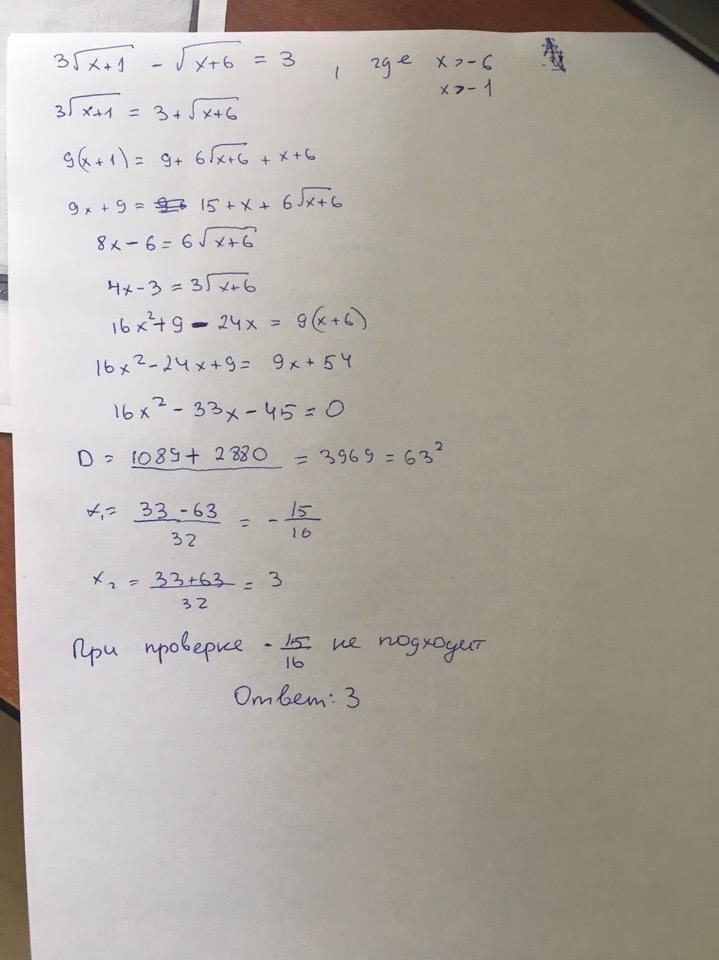 3√(x+1) - √(x+6) = 3 , где x > -6
x > -1
3√(x+1) = 3 + √(x+6)
9(x+1) = 9 + 6√(x+6) + x+6
9x + 9 = 15 + x + 6√(x+6)
8x - 6 = 6√(x+6)
4x - 3 = 3√(x+6)
16x² + 9 - 24x = 9(x+6)
16x² - 24x + 9 = 9x + 54
16x² - 33x - 45 = 0
D = 1089 + 2880 = 3969 = 63²
x₁ = (33 - 63)/32 = - 15/16
x₂ = (33 + 63)/32 = 3
При проверке - 15/16 не подходит
Ответ: 3